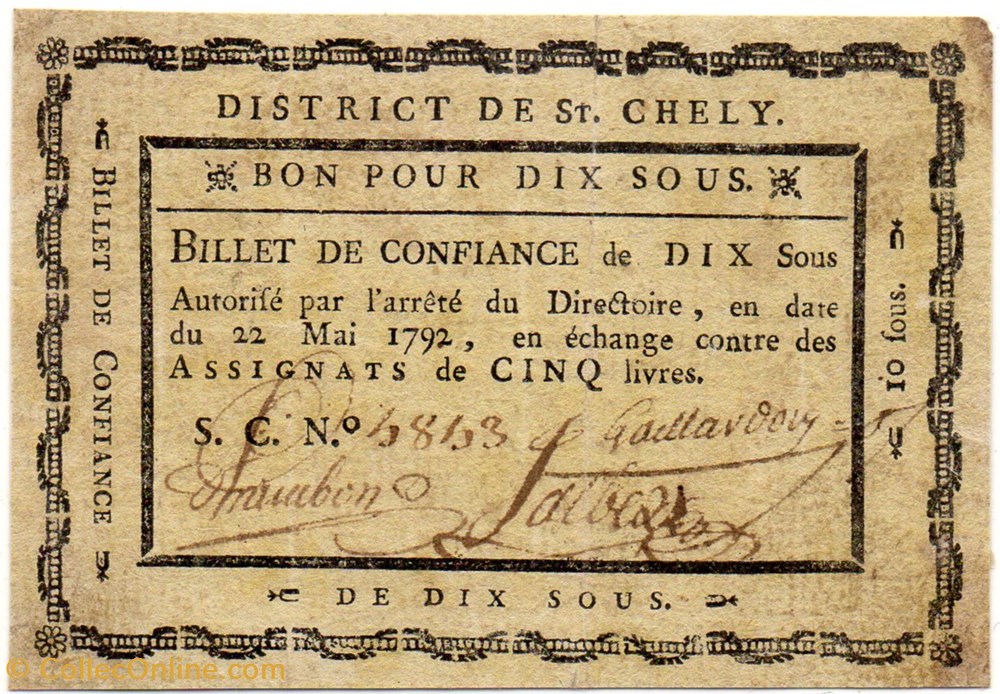 DISTRICT DE ST. CHELY.
BON POUR DIX SOUS.
BILLET DE CONFIANCE de DIX Sous
Autoriſé par l'arrêté du Directoire, en date
du 22 Mai 1792, en échange contre des
ASSIGNATS de CINQ livres.
S. C. N.º
BILLET DE CONFIANCE
10 ſous.
DE DIX SOUS.
© CollecOnline.com